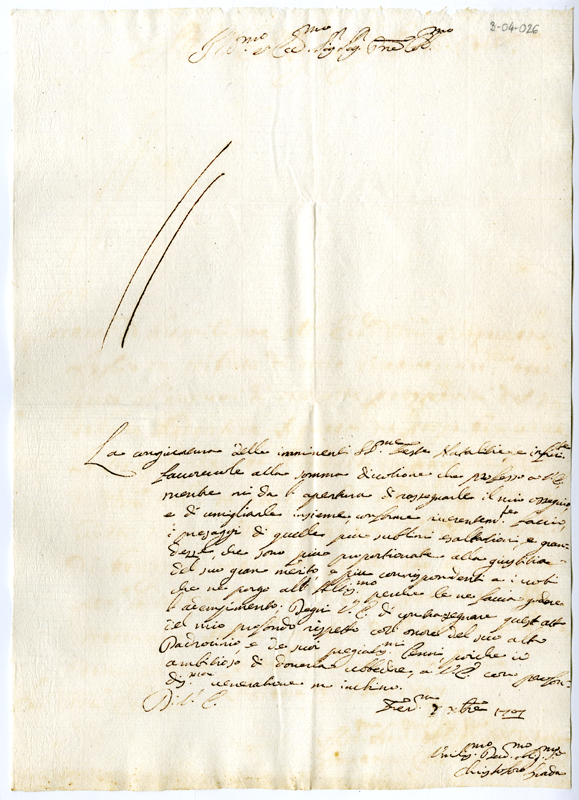 3-04-026
Ill.mo et Ecc.mo Sig.r Sig.r P.ne Col.mo
La congiuntura delle imminenti SS.me Feste Natalizie è
favorevole alla somma divotione che professo a V.E.
mentre mi dà l'apertura di rassegnarle il mio ossequio
e di umigliarle insieme, conforme riverentem.te faccio,
i presaggi di quelle più sublimi esaltationi, e gran-
dezze, che sono più proportionate alla
del suo gran merito, e più corrispondenti a i voti
che ne porgo all'Altiss.mo perche le ne faccia godere
l'adempimento; Degni V.E. di contrasegnare quest'atto
del mio profondo rispetto con onore del suo alto
Padrocinio e de suoi pregiatis.mi Cenni poiche io
ambitioso di doverla ubbedire, a V.E. con profon-
diss.ma veneratione m'inchino.
Di V.E.
Xbre 1707
Umiliss.mo Dev.mo Obl.mo